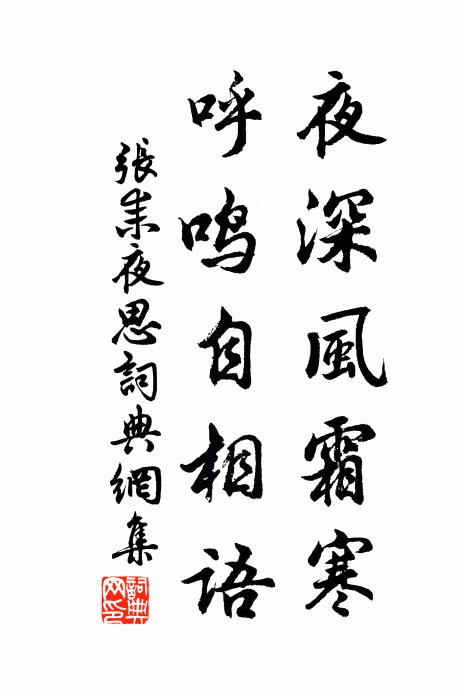 夜深風霜寒
呼鸣自相語
張耒夜思詞典網集
詞典网印